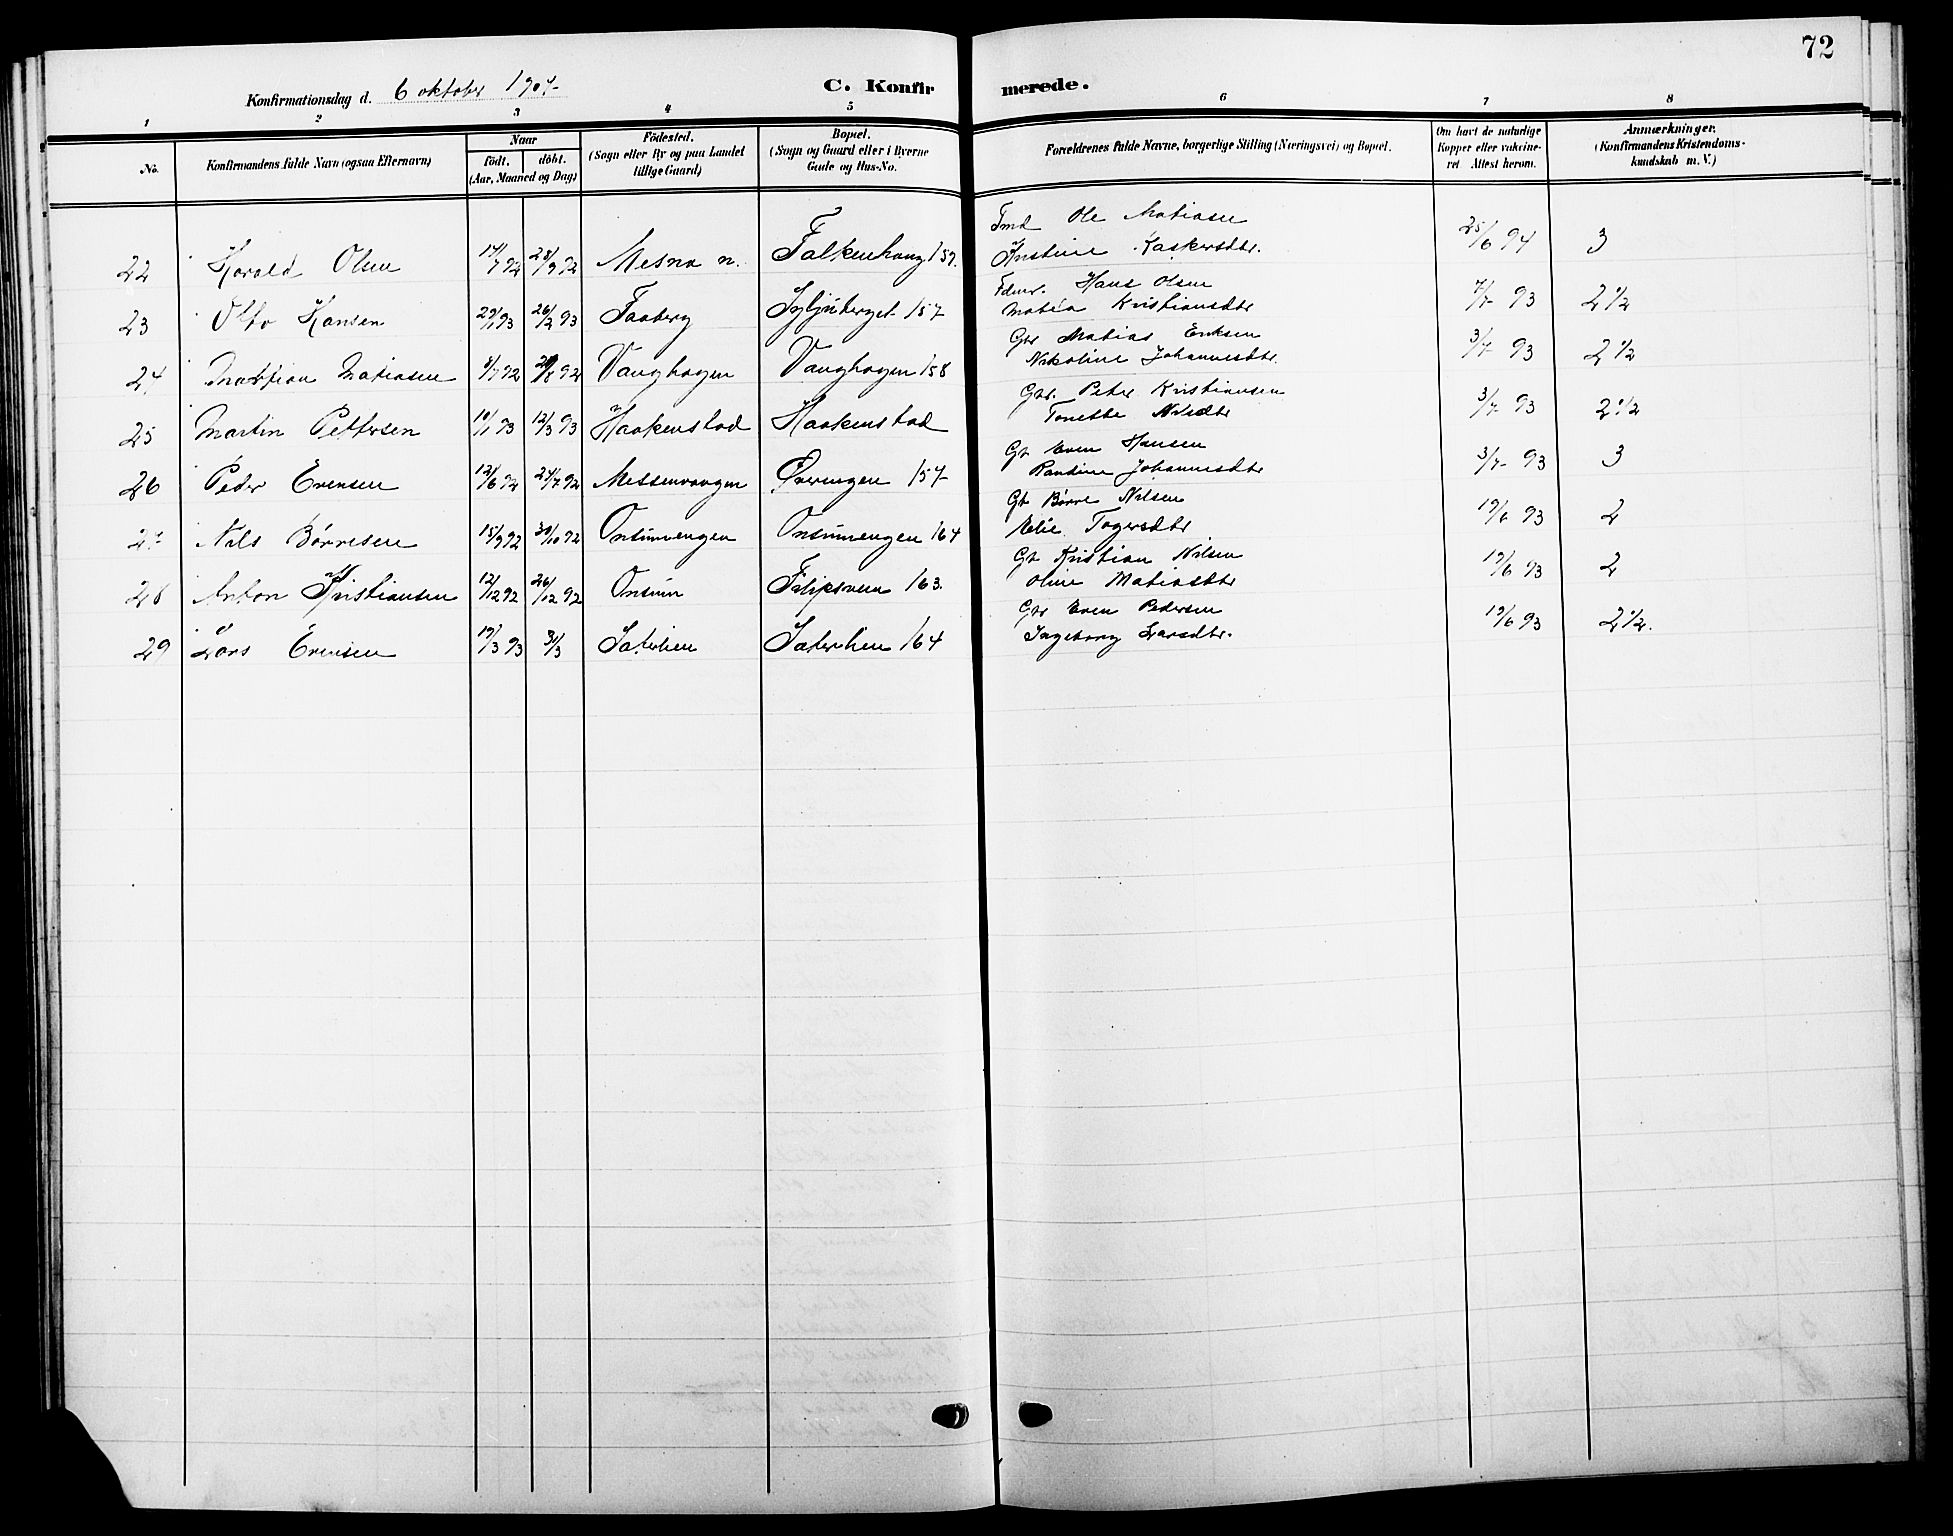 72
Konfirmationsdag d. 6 oktober 1907
C. Konfirmerede.
1 2 3 4 5 6 7 8
No.
Konfirmandens fulde Navn (ogsaa Efternavn)
Naar
födt. döbt.
(Aar, Maaned og Dag)
Födested.
(Sogn eller By og paa Landet
tillige Gaard)
Bopæl.
(Sogn og Gaard eller i Byerne
Gade og Hus-No.
Forældrenes fulde Navne, borgerlige Stilling (Næringsvei) og Bopæl.
Om havt de naturlige
Kopper eller vakcine-
ret Attest herom.
Anmærkninger.
(Konfirmandens Kristendoms-
kundskab m. V.)
22 Harald Olsen 14/7 92 28/9 92 Mesna n. Falkenhaug 157. Fmd Ole Matiasen 25/6 94 3
Kristine Kaspersdtr.
23 Otto Hansen 29/1 93 26/2 93 Faaberg Syljuberget 157 Hans Olsen 7/7 93 2 1/2
Matea Kristiansdtr
24 Matiasen 8/7 92 Vaughagen Vaughagen 158 Gbr Matias Eriksen 3/7 93 2 1/2
Nikoline Johannesdtr.
25 Martin Pettersen 10/1 93 12/3 93 Haakenstad Haakenstad Gbr. Peter Kristiansen 3/7 93 2 1/2
Tonette Nilsdtr
26 Peder Evensen 12/6 92 24/7 92 Messenvangen Øveringen 157 Gb Even Hansen 3/7 93 3
Randine Johannesdtr
27 Nils Børresen 15/9 92 30/10 92 Onsumengen Onsumengen 164 Gb Børre Nilsen 19/6 93 2
Elie
28 Anton Kristiansen 12/12 92 26/12 92 Onsum Filipsveen 163. Gb Kristian Nilsen 19/6 93 2
Oline Matiasdtr
29 Lars Evensen 19/3 93 31/3 Saterlien Saterlien 164 Gbr Even Pedersen 19/6 93 2 1/2.
Ingeborg Larsdtr.